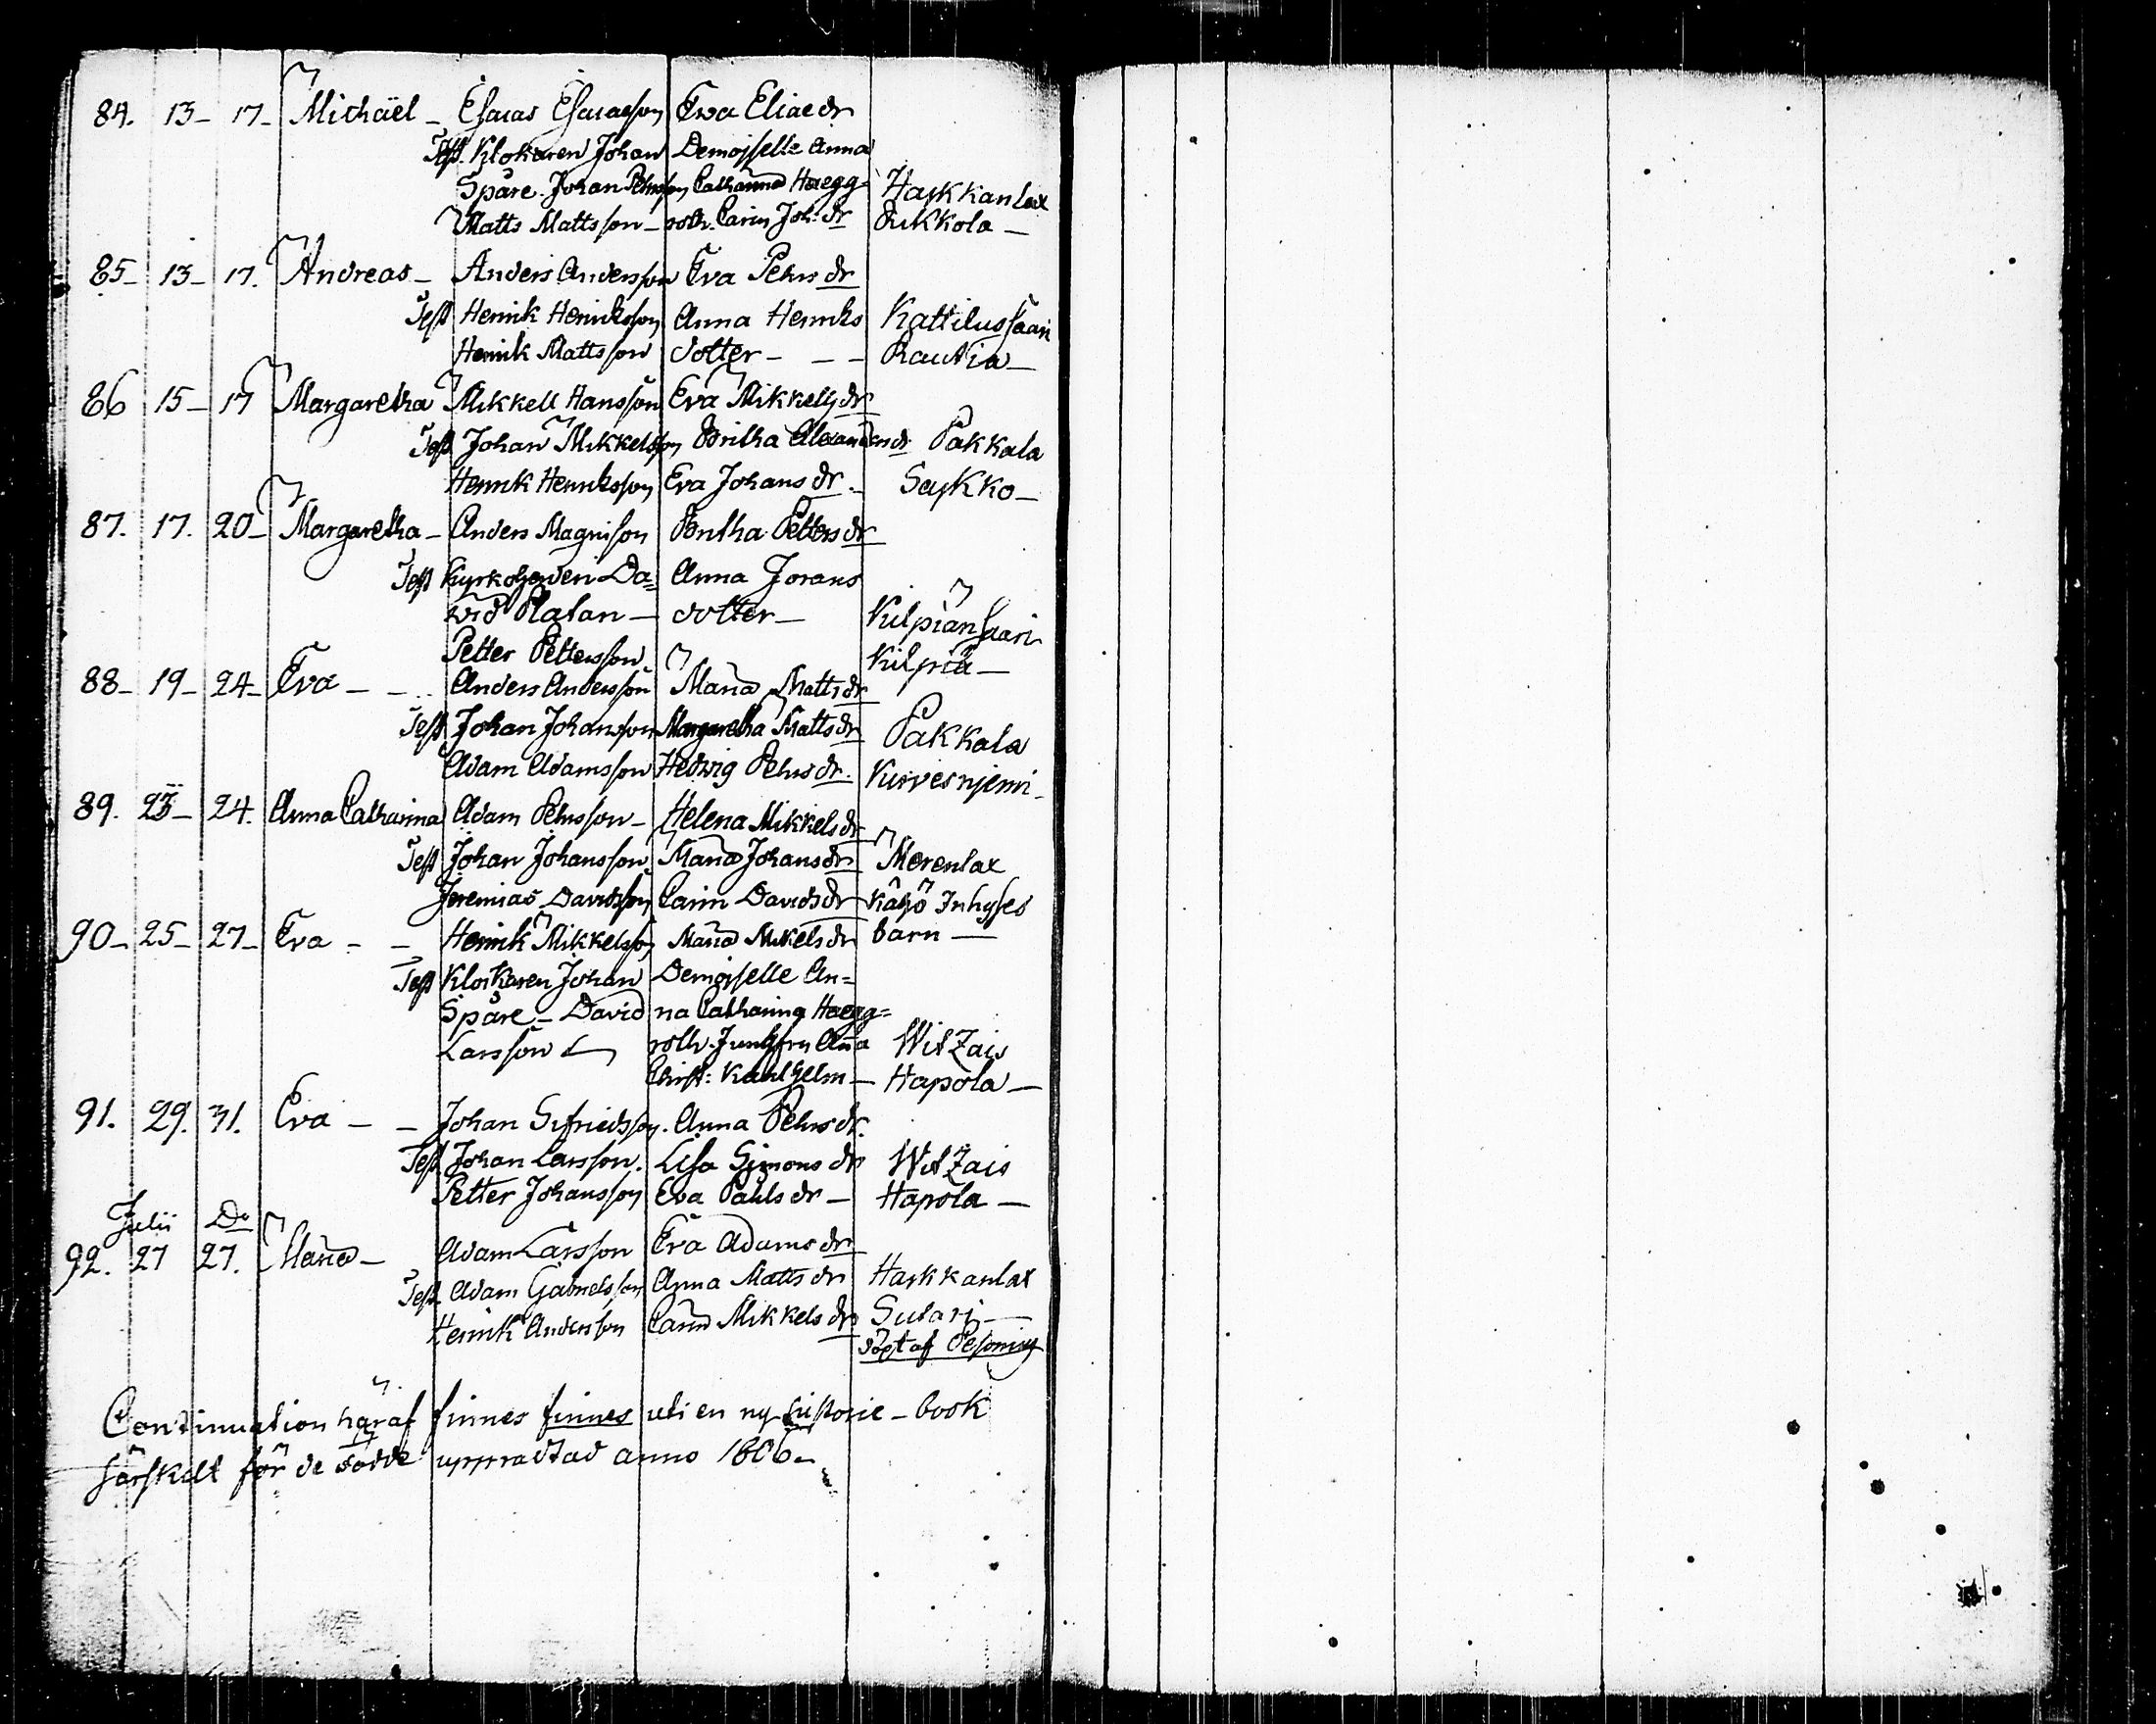 84. 13- 17- Michäel - Esaias Esaiasson Ewa Eliae dr
Test. Klokaren Johan Demoiselle Anna
Spåre. Johan Pehrsson Catharina Haegg=
Matts Mattsson - roth. Carin Joh: dr
Haskkanlax
Rukkola -
85- 13- 17. Andreas - Anders Andersson Eva Pehrs dr
Test Henrik Henriksson Anna Henriks Kattilussaari
Henrik Mattsson dotter - - - Rautia -
86 15- 17 Margaretha Mikkell Hansson Eva Mikkells dr
Test Johan Mikkelsson Britha Alexanders dr Pakkala
Henrik Henriksson Eva Johans dr - Saykko -
87. 17. 20- Margaretha - Anders Magnison Britha Petters dr
Test Kyrkoherden Da= Anna Jorans
vid Alatan - dotter - Kilpiansaari
Petter Pettersson Kilpiä -
88- 19- 24- Eva - - Anders Andersson Maria Matts dr
Test Johan Johansson Margaretha Matts dr Pakkala
Adam Adamsson Hedwig Pehrs dr. Kurvesnjemi -
89. 23- 24. Anna Catharina Adam Pehrsson - Helena Mikkels dr
Test Johan Johansson Maria Johans dr Merenlax
Jeremias Davidsson Carin Davids dr Kähö Inhyses
barn -
90- 25- 27- Eva - - Henrik Mikkelsson Maria Mikels dr
Test Klockaren Johan Demoiselle An=
Spåre - David na Catharina Haegg=
Larsson roth. Jungfru Anna WitZais
Christ: Kahlhelm - Hapola -
91. 29. 31. Eva - - Johan Sifriedsson. Anna Pehrs dr.
Test Johan Larsson. Lisa Simons dr WitZais
Petter Johansson Eva Påhls dr - Hapola -
Julii Do
92. 27 27. Maria - Adam Larsson Eva Adams dr
Test Adam Gabrielsson Anna Matts dr Haskkanlax
Henrik Andersson Carin Mikkels dr Sutari -
döpt af Pesonius
Continuation häraf finnes finnes uti en ny historie-book
särskilt för de födde upprättad anno 1806.